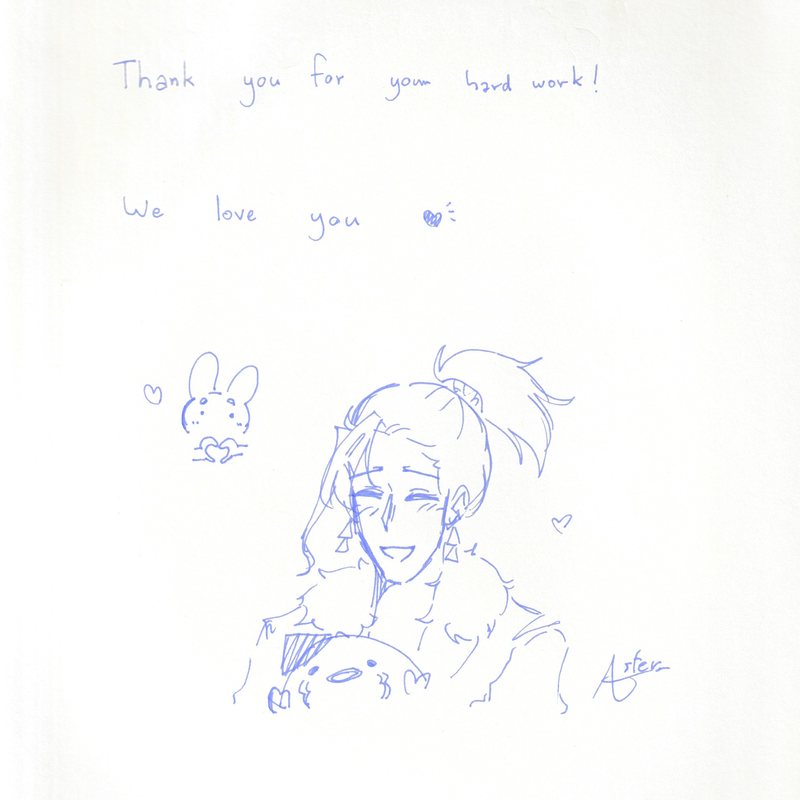 Thank you for your hard work!
We love you
Asters